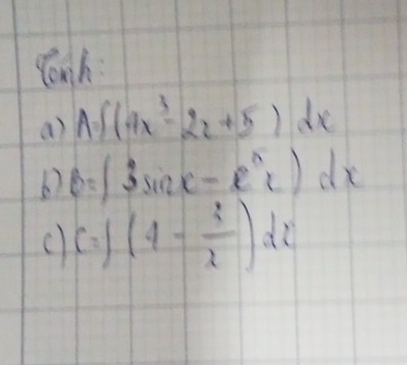 Tính:
a) A=∫(4x³-2x+5) dx
b) B=∫(3sinx - eˣx) dx
c) C=∫(1 - 3/x) dx